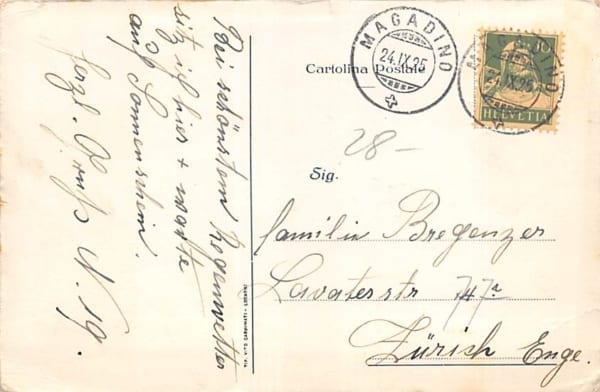 Bei schönstem Regenwetter
sitz ich hier + warte
auf Sonnenschein.
Herzl. Gruss N. 19.
Cartolina Postale
MAGADINO
24.IX.25
MAGADINO
24.IX.25
10
HELVETIA
28-
Sig.
Familie Bregenzer
Lavaterstr 77a
Zürich Enge.